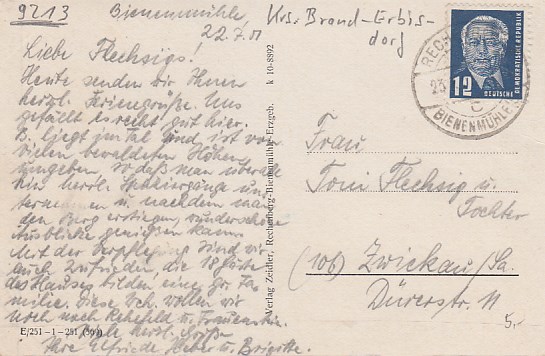 9213
Bienenmühle,
22.7.51
Krs. Brand-Erbis-
dorf
Liebe Flechsigs!
Heute senden wir Ihnen
herzl. Feriengrüße. Uns
gefällt es recht gut hier.
B. liegt im Tal und ist von
vielen bewaldeten Höhen
umgeben. So daß man überall
hin herrl. Spaziergänge un-
ternehmen u. nachdem man
den Berg erstiegen, wunderschöne
Ausblicke genießen kann.
Mit der Verpflegung sind wir
auch zufrieden, die 18 Gäste
des Hauses bilden eine gr. Fa-
milie. Diese Wch. wollen wir
noch nach Rehefeld u. Frauenstein.
herzl. Grüße
Ihre Elfriede Weber u. Brigitte.
E/251-1-251 (569)
Verlag Zeidler, Rechenberg-Bienenmühle-Erzgeb. k 10-8892
DEUTSCHE
DEMOKRATISCHE REPUBLIK
12
RECH
23
c
BIENENMÜHLE
Frau
Toni Flechsig u.
Tochter
(10b) Zwickau/Sa.
Dürerstr. 11
5,-